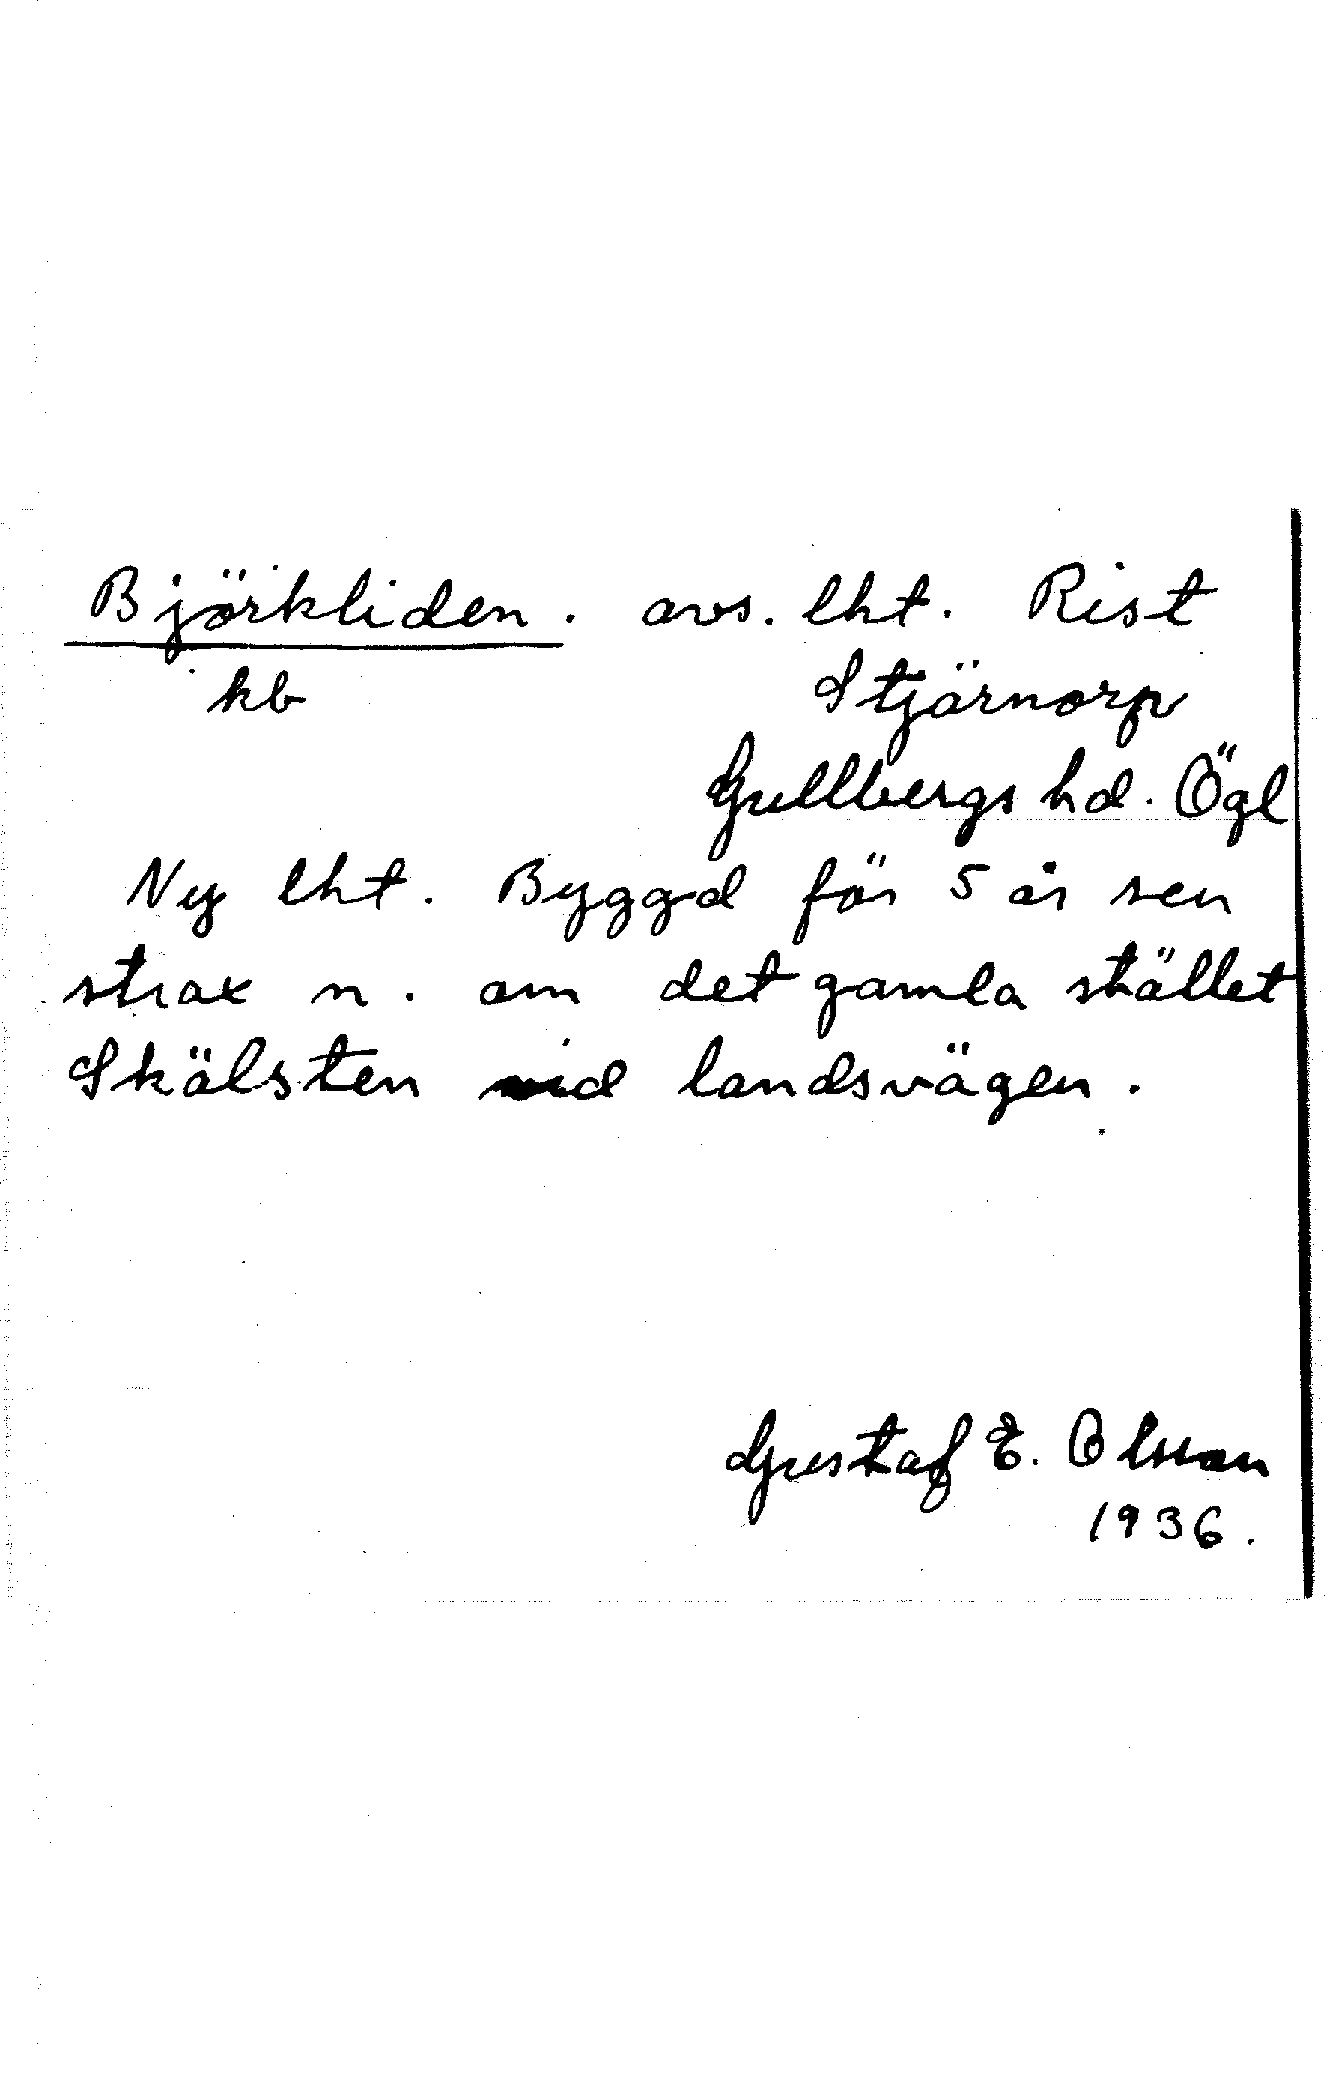 Björkliden. avs. lht. Rist
kb Stjärnorp
Gullbergs hd. Ögl
Ny lht. Byggd för 5 år sen
strax n. om det gamla stället
Skälsten vid landsvägen.
Gustaf E. Olsson
1936.